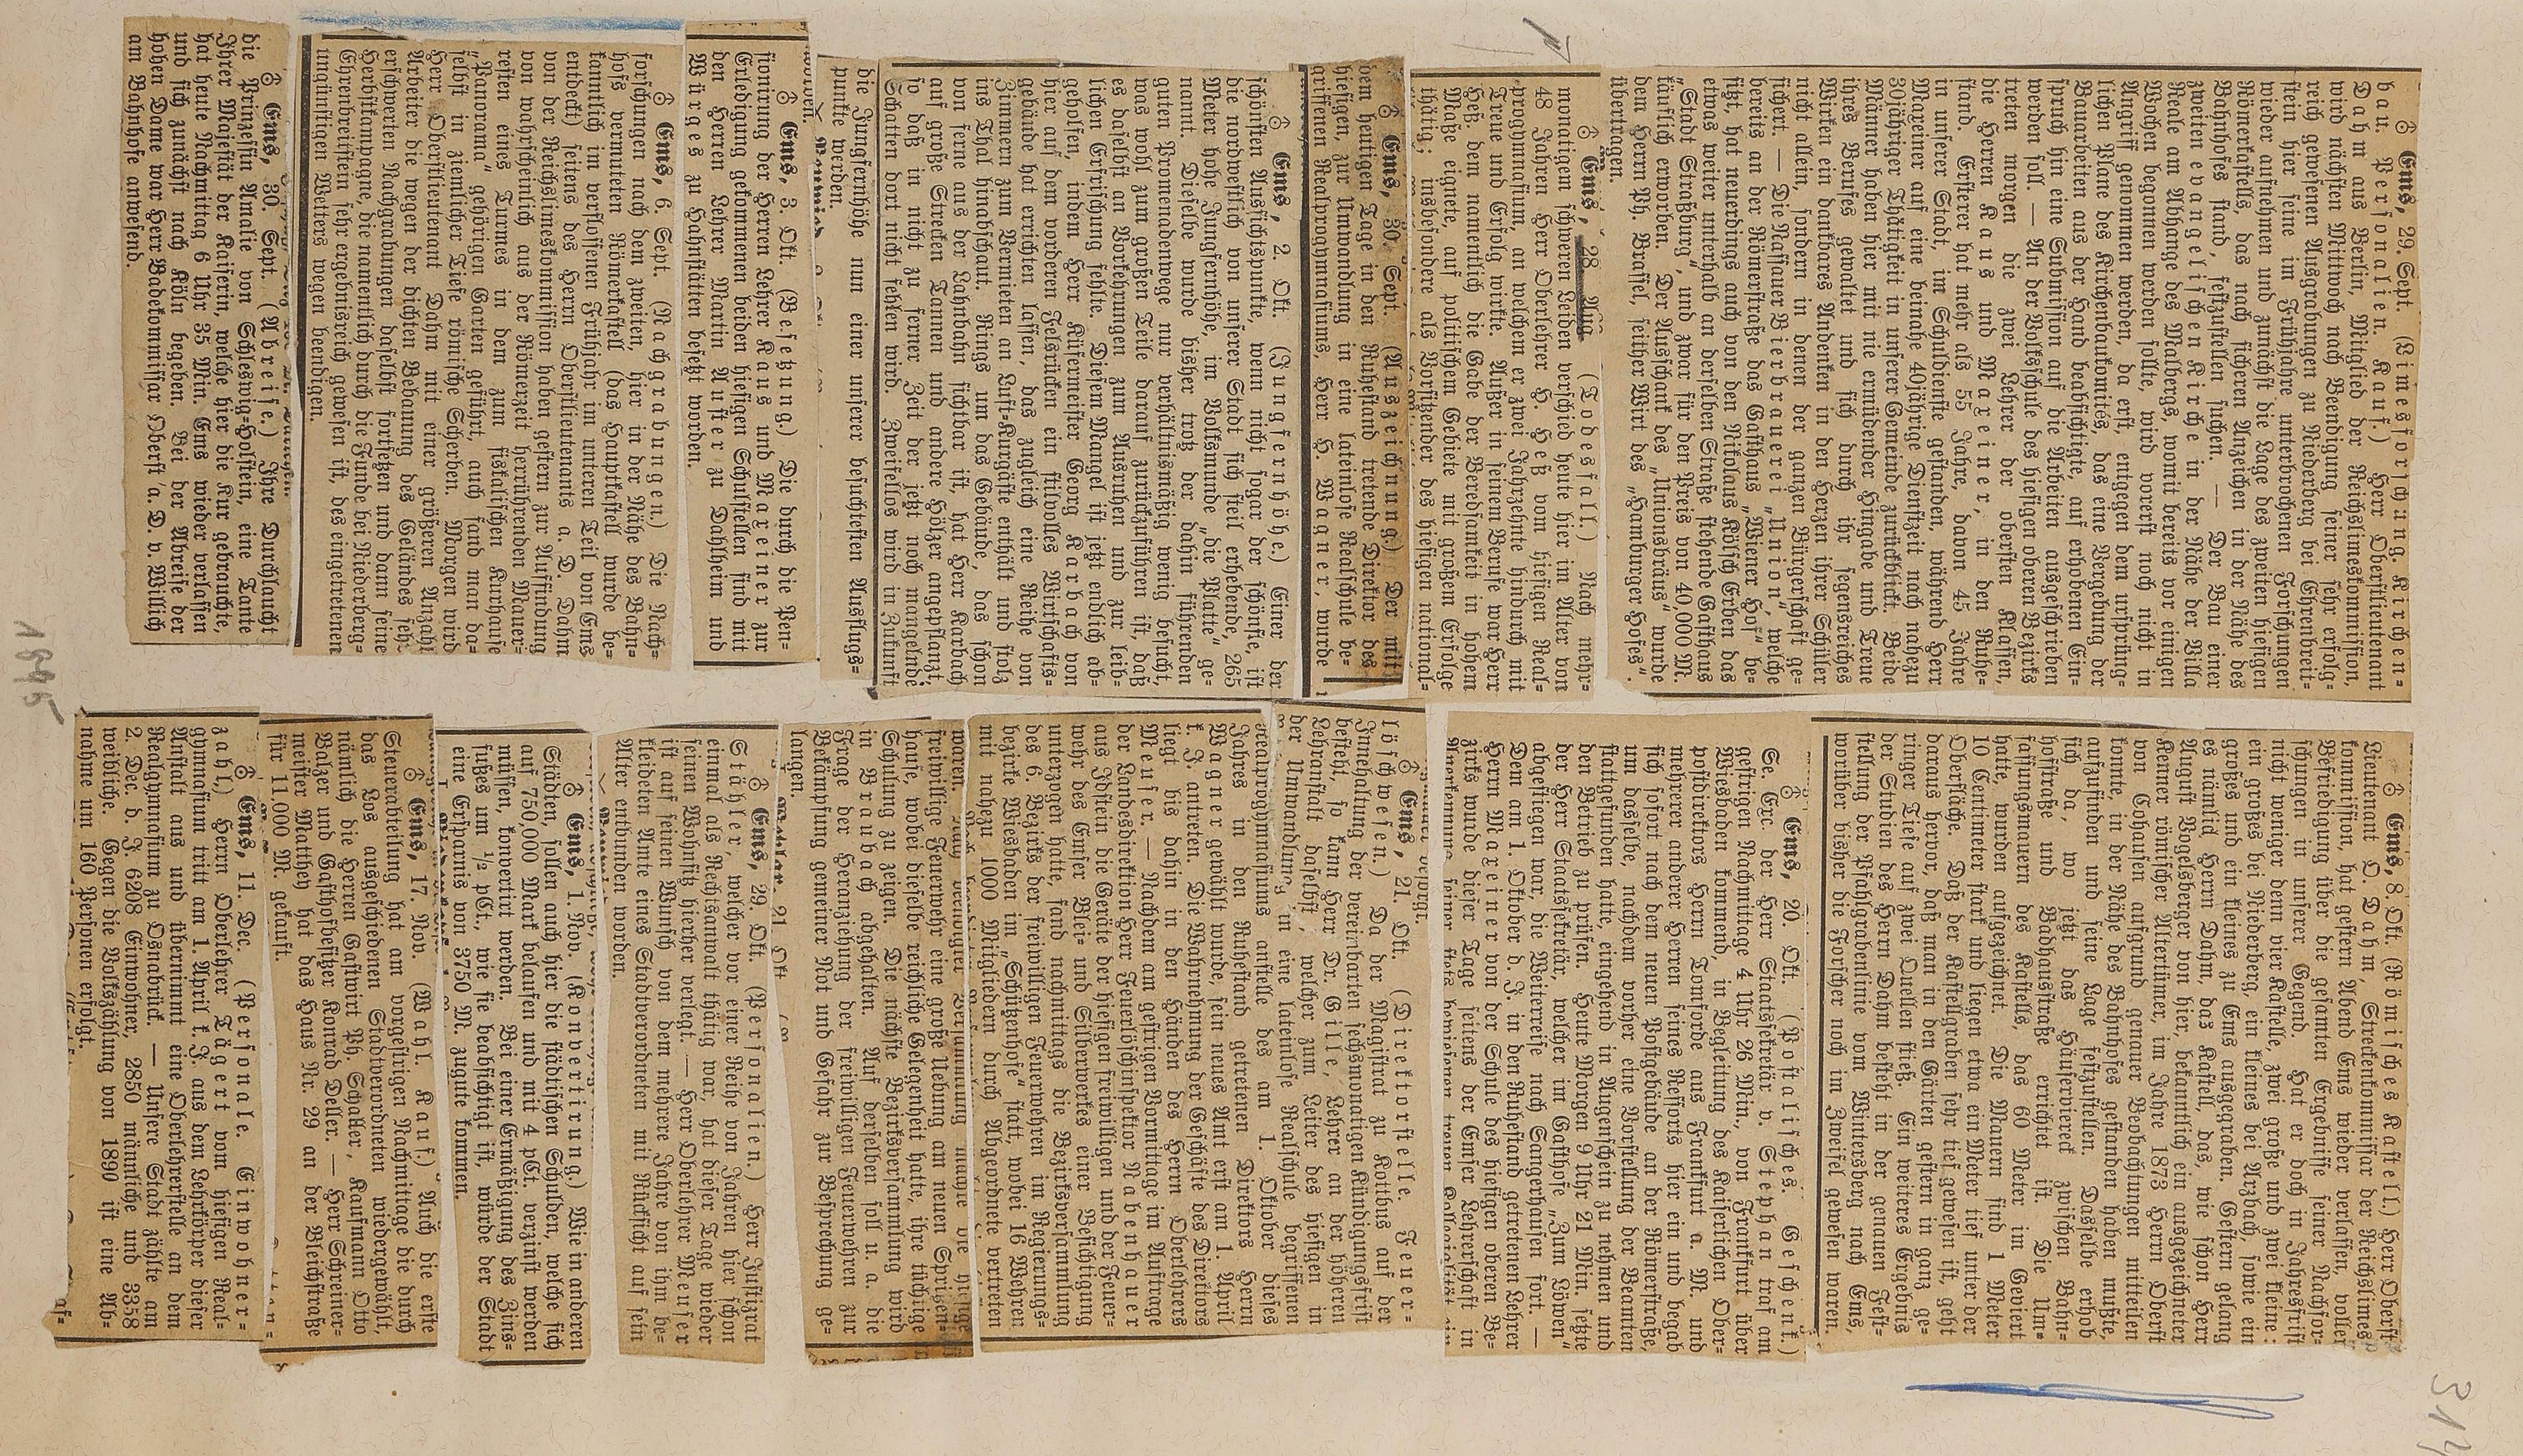 31
☉ Ems, 29. Sept. (Limesforschung. Kirchen-
bau. Personalien. Kauf.) Herr Oberstlieutenant
Dahm aus Berlin, Mitglied der Reichslimeskommission,
wird nächsten Mittwoch nach Beendigung seiner sehr erfolg-
reich gewesenen Ausgrabungen zu Niederberg bei Ehrenbreit-
stein hier seine im Frühjahre unterbrochenen Forschungen
wieder aufnehmen und zunächst die Lage des zweiten hiesigen
Römerkastells, das nach sicheren Anzeichen in der Nähe des
Bahnhofes stand, festzustellen suchen. — Der Bau einer
zweiten evangelischen Kirche in der Nähe der Villa
Reale am Abhange des Malbergs, womit bereits vor einigen
Wochen begonnen werden sollte, wird vorerst noch nicht in
Angriff genommen werden, da erst, entgegen dem ursprüng-
lichen Plane des Kirchenbaukomités, das eine Vergebung der
Bauarbeiten aus der Hand beabsichtigte, auf erhobenen Ein-
spruch hin eine Submission auf die Arbeiten ausgeschrieben
werden soll. — An der Volksschule des hiesigen oberen Bezirks
treten morgen die zwei Lehrer der obersten Klassen,
die Herren Kaus und Mareiner, in den Ruhe-
stand. Ersterer hat mehr als 55 Jahre, davon 45 Jahre
in unserer Stadt, im Schuldienste gestanden, während Herr
Mareiner auf eine beinahe 40jährige Dienstzeit nach nahezu
30jähriger Thätigkeit in unserer Gemeinde zurückblickt. Beide
Männer haben hier mit nie ermüdender Hingabe und Treue
ihres Berufes gewaltet und sich durch ihr segensreiches
Wirken ein dankbares Andenken in den Herzen ihrer Schüler
nicht allein, sondern in denen der ganzen Bürgerschaft ge-
sichert. — Die Nassauer Bierbrauerei „Union“, welche
bereits an der Römerstraße das Gasthaus „Wiener Hof“ be-
sitzt, hat neuerdings auch von den Nikolaus Külsch Erben das
etwas weiter unterhalb an derselben Straße stehende Gasthaus
„Stadt Straßburg“, und zwar für den Preis von 40,000 M.
käuflich erworben. Der Ausschank des „Unionsbräus“ wurde
dem Herrn Ph. Brassel, seither Wirt des „Hamburger Hofes“,
übertragen.
☉ Ems, 28. Aug. (Todesfall.) Nach mehr-
monatigem schweren Leiden verschied heute hier im Alter von
48 Jahren Herr Oberlehrer H. Heß vom hiesigen Real-
progymnasium, an welchem er zwei Jahrzehnte hindurch mit
Treue und Erfolg wirkte. Außer in seinem Berufe war Herr
Heß, dem namentlich die Gabe der Beredsamkeit in hohem
Maße eignete, auf politischem Gebiete mit großem Erfolge
thätig; insbesondere als Vorsitzender des hiesigen national-
☉ Ems, 30. Sept. (Auszeichnung.) Der mit
dem heutigen Tage in den Ruhestand tretende Direktor des
hiesigen, zur Umwandlung in eine lateinlose Realschule be-
griffenen Realprogymnasiums, Herr H. Wagner, wurde
☉ Ems, 2. Okt. (Jungfernhöhe.) Einer der
schönsten Aussichtspunkte, wenn nicht sogar der schönste, ist
die nordwestlich von unserer Stadt sich steil erhebende, 265
Meter hohe Jungfernhöhe, im Volksmunde „die Platte“ ge-
nannt. Dieselbe wurde bisher trotz der dahin führenden
guten Promenadenwege nur verhältnismäßig wenig besucht,
was wohl zum großen Teile darauf zurückzuführen ist, daß
es daselbst an Vorkehrungen zum Ausruhen und zur leib-
lichen Erfrischung fehlte. Diesem Mangel ist jetzt endlich ab-
geholfen, indem Herr Küfermeister Georg Karbach von
hier auf dem vorderen Felsrücken ein stilvolles Wirtschafts-
gebäude hat errichten lassen, das zugleich eine Reihe von
Zimmern zum Vermieten an Luft-Kurgäste enthält und stolz
ins Thal hinabschaut. Rings um das Gebäude, das schon
von ferne aus der Lahnbahn sichtbar ist, hat Herr Karbach
auf große Strecken Tannen und andere Hölzer angepflanzt,
so daß in nicht zu ferner Zeit der jetzt noch mangelnde
Schatten dort nicht fehlen wird. Zweifellos wird in Zukunft
die Jungfernhöhe nun einer unserer besuchtesten Ausflugs-
punkte werden.
☉ Ems, 3. Okt. (Besetzung.) Die durch die Pen-
sionirung der Herren Lehrer Kaus und Mareiner zur
Erledigung gekommenen beiden hiesigen Schulstellen sind mit
den Herren Lehrer Martin Auser zu Dahlheim und
Würges zu Hahnstätten besetzt worden.
☉ Ems, 6. Sept. (Nachgrabungen.) Die Nach-
forschungen nach dem zweiten, hier in der Nähe des Bahn-
hofs vermuteten Römerkastell (das Hauptkastell wurde be-
kanntlich im verflossenen Frühjahr im unteren Teil von Ems
entdeckt) seitens des Herrn Oberstlieutenants a. D. Dahm
von der Reichslimeskommission haben gestern zur Auffindung
von wahrscheinlich aus der Römerzeit herrührenden Mauer-
resten eines Turmes in dem zum fiskalischen Kurhause
„Panorama“ gehörigen Garten geführt, auch fand man da-
selbst in ziemlicher Tiefe römische Scherben. Morgen wird
Herr Oberstlieutenant Dahm mit einer größeren Anzahl
Arbeiter die wegen der dichten Bebauung des Geländes sehr
erschwerten Nachgrabungen daselbst fortsetzen und dann seine
Herbstkampagne, die namentlich durch die Funde bei Niederberg-
Ehrenbreitstein sehr ergebnisreich gewesen ist, des eingetretenen
ungünstigen Wetters wegen beendigen.
☉ Ems, 30. Sept. (Abreise.) Ihre Durchlaucht
die Prinzessin Amalie von Schleswig-Holstein, eine Tante
Ihrer Majestät der Kaiserin, welche hier die Kur gebrauchte,
hat heute Nachmittag 6 Uhr 35 Min. Ems wieder verlassen
und sich zunächst nach Köln begeben. Bei der Abreise der
hohen Dame war Herr Badekommissar Oberst a. D. v. Willich
am Bahnhofe anwesend.
1895
☉ Ems, 8. Okt. (Römisches Kastell.) Herr Oberst-
lieutenant O. Dahm, Streckenkommissar der Reichslimes-
kommission, hat gestern Abend Ems wieder verlassen, vollet
Befriedigung über die gesamten Ergebnisse seiner Nachfor-
schungen in unserer Gegend. Hat er doch in Jahresfrist
nicht weniger denn vier Kastelle, zwei große und zwei kleine:
ein großes bei Niederberg, ein kleines bei Arzbach, sowie ein
großes und ein kleines zu Ems ausgegraben. Gestern gelang
es nämlich Herrn Dahm, das Kastell, das, wie schon Herr
August Vogelsberger von hier, bekanntlich ein ausgezeichneter
Kenner römischer Altertümer, im Jahre 1873 Herrn Oberst
von Cohausen aufgrund genauer Beobachtungen mitteilen
konnte, in der Nähe des Bahnhofes gestanden haben mußte,
aufzufinden und seine Lage festzustellen. Dasselbe erhob
sich da, wo jetzt das Häuserviereck zwischen Bahn-
hofstraße und Badhausstraße errichtet ist. Die Um-
fassungsmauern des Kastells, das 60 Meter im Geviert
hatte, wurden aufgezeichnet. Die Mauern sind 1 Meter
10 Centimeter stark und liegen etwa ein Meter tief unter der
Oberfläche. Daß der Kastellgraben sehr tief gewesen ist, geht
daraus hervor, daß man in den Gärten gestern in ganz ge-
ringer Tiefe auf zwei Quellen stieß. Ein weiteres Ergebnis
der Studien des Herrn Dahm besteht in der genauen Fest-
stellung der Pfahlgrabenlinie vom Wintersberg nach Ems,
worüber bisher die Forscher noch im Zweifel gewesen waren.
☉ Ems, 20. Okt. (Postalisches. Geschenk.)
Se. Exc. der Herr Staatssekretär v. Stephan traf am
gestrigen Nachmittage 4 Uhr 26 Min., von Frankfurt über
Wiesbaden kommend, in Begleitung des Kaiserlichen Ober-
postdirektors Herrn Tomforde aus Frankfurt a. M. und
mehrerer anderer Herren seines Ressorts hier ein und begab
sich sofort nach dem neuen Postgebäude an der Römerstraße,
um dasselbe, nachdem vorher eine Vorstellung der Beamten
stattgefunden hatte, eingehend in Augenschein zu nehmen und
den Betrieb zu prüfen. Heute Morgen 9 Uhr 21 Min. setzte
der Herr Staatssekretär, welcher im Gasthofe „Zum Löwen“
abgestiegen war, die Weiterreise nach Sangerhausen fort. —
Dem am 1. Oktober d. J. in den Ruhestand getretenen Lehrer
Herrn Mareiner von der Schule des hiesigen oberen Be-
zirks wurde dieser Tage seitens der Emser Lehrerschaft in
Anerkennung seiner stets bewiesenen treuen Kollegialität ein
☉ Ems, 21. Okt. (Direktorstelle. Feuer-
löschwesen.) Da der Magistrat zu Kottbus auf der
Innehaltung der vereinbarten sechsmonatigen Kündigungsfrist
besteht, so kann Herr Dr. Gille, Lehrer an der höheren
Lehranstalt daselbst, welcher zum Leiter des hiesigen in
der Umwandlung in eine lateinlose Realschule begriffenen
Realprogymnasiums anstelle des am 1. Oktober dieses
Jahres in den Ruhestand getretenen Direktors Herrn
Wagner gewählt wurde, sein neues Amt erst am 1. April
k. J. antreten. Die Wahrnehmung der Geschäfte des Direktors
liegt bis dahin in den Händen des Herrn Oberlehrers
Menser. — Nachdem am gestrigen Vormittage im Auftrage
der Landesdirektion Herr Feuerlöschinspektor Rabenhauer
aus Idstein die Geräte der hiesigen freiwilligen und der Feuer-
wehr des Emser Blei- und Silberwerkes einer Besichtigung
unterzogen hatte, fand nachmittags die Bezirksversammlung
des 6. Bezirks der freiwilligen Feuerwehren im Regierungs-
bezirke Wiesbaden im „Schützenhofe“ statt, wobei 16 Wehren
mit nahezu 1000 Mitgliedern durch Abgeordnete vertreten
waren.
freiwillige Feuerwehr eine große Uebung am neuen Spritzen-
hause, wobei dieselbe reichliche Gelegenheit hatte, ihre tüchtige
Schulung zu zeigen. Die nächste Bezirksversammlung wird
in Braubach abgehalten. Auf derselben soll u. a. die
Frage der Heranziehung der freiwilligen Feuerwehren zur
Bekämpfung gemeiner Not und Gefahr zur Besprechung ge-
langen.
☉ Ems, 29. Okt. (Personalien.) Herr Justizrat
Stähler, welcher vor einer Reihe von Jahren hier schon
einmal als Rechtsanwalt thätig war, hat dieser Tage wieder
seinen Wohnsitz hierher verlegt. — Herr Oberlehrer Menser
ist auf seinen Wunsch von dem mehrere Jahre von ihm be-
kleideten Amte eines Stadtverordneten mit Rücksicht auf sein
Alter entbunden worden.
☉ Ems, 1. Nov. (Konvertirung.) Wie in anderen
Städten, sollen auch hier die städtischen Schulden, welche sich
auf 750,000 Mark belaufen und mit 4 pCt. verzinst werden
müssen, konvertirt werden. Bei einer Ermäßigung des Zins-
fußes um ½ pCt., wie sie beabsichtigt ist, würde der Stadt
eine Ersparnis von 3750 M. zugute kommen.
☉ Ems, 17. Nov. (Wahl. Kauf.) Auch die erste
Steuerabteilung hat am vorgestrigen Nachmittage die durch
das Los ausgeschiedenen Stadtverordneten wiedergewählt,
nämlich die Herren Gastwirt Ph. Schaller, Kaufmann Otto
Balzer und Gasthofbesitzer Konrad Deller. — Herr Schreiner-
meister Matthey hat das Haus Nr. 29 an der Bleichstraße
für 11,000 M. gekauft.
☉ Ems, 11. Dec. (Personale. Einwohner-
zahl.) Herrn Oberlehrer Tägert vom hiesigen Real-
gymnasium tritt am 1. April k. J. aus dem Lehrkörper dieser
Anstalt aus und übernimmt eine Oberlehrerstelle an dem
Realgymnasium zu Osnabrück. — Unsere Stadt zählte am
2. Dec. d. J. 6208 Einwohner, 2850 männliche und 3358
weibliche. Gegen die Volkszählung von 1890 ist eine Ab-
nahme um 160 Personen erfolgt.